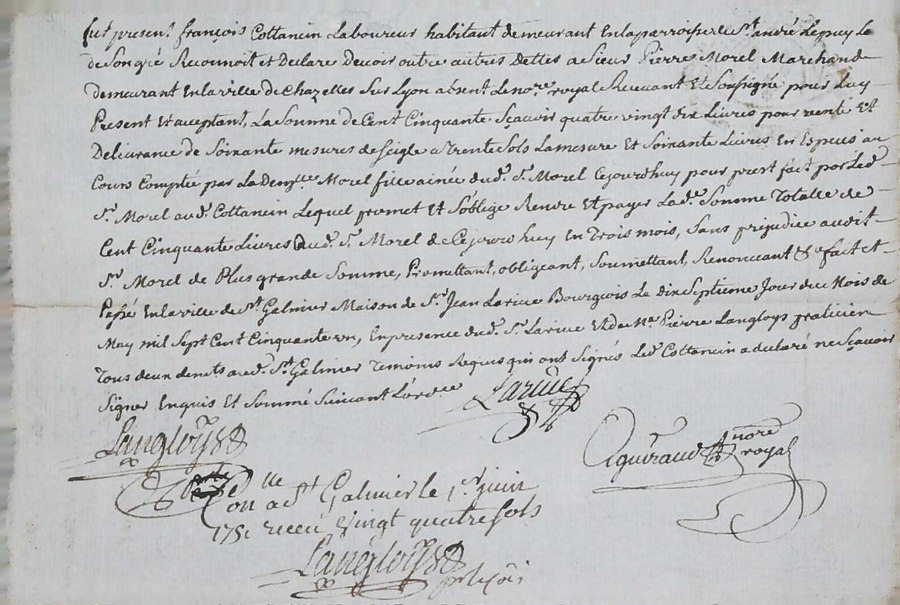 fut present françois Cottancin Laboureur habitant demeurant En la parroisse de St. andré Lepuy Le
de Son gré Reconnoit et Declare devoir outre autres dettes a Sieur Pierre Morel Marchand
demeurant En la ville de Chazelles Sur Lyon absent Le nore. royal Recevant Et Soussigné pour Luy
Present Et acceptant, La Somme de Cent Cinquante Sçavoir quatre vingt dix Livres pour vente Et
Delivrance de Soixante mesures de seigle a trente Sols La mesure Et Soixante Livres En Especes au
Cours Comptée par La Demlle. Morel fille ainée du d. Sr. Morel Cejourdhuy pour prest fait par Led.
Sr. Morel au d. Cottancin Lequel promet Et S'oblige Rendre Et payer La d. Somme Totalle de
Cent Cinquante Livres au d. Sr. Morel de Cejourdhuy En Trois mois, Sans prejudice audit
Sr. Morel de Plus grande Somme, Promettant, obligeant, Soumettant, Renonceant &c fait et
Passé En la ville de St. Galmier Maison de Sr. Jean Larive Bourgeois Le dix Septieme Jour du Mois de
May mil Sept Cent Cinquante un, En presence du d. Sr. Larive Et de Me. Pierre Langloys praticien
Tous deux de au d. St. Galmier Temoins Requis qui ont Signés Led. Cottancin a declaré ne Sçavoir
Signer Enquis Et Sommé Suivant L'ordce
Larive
Langloys
nore
royal
Con a St. Galmier le 1er. juin
1751 receu Vingt quatre Sols
Langloys